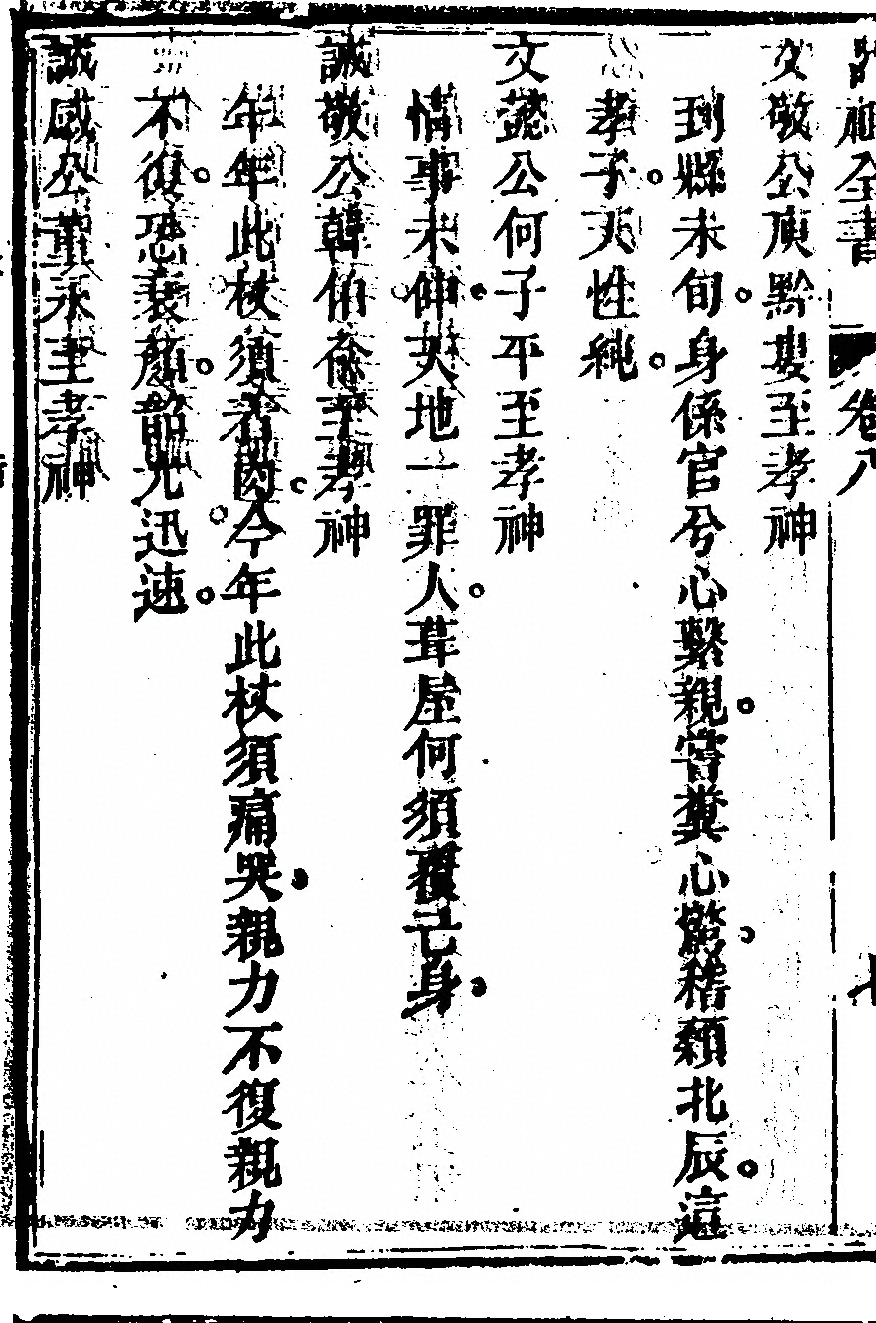 祖全書 卷八 七
文敬公庾黔婁至孝神
到縣未旬。身係官兮心繫親。嘗糞心驚。稽顙北辰。這
孝子。天性純。
文懿公何子平至孝神
情事未伸。天地一罪人。葺屋何須覆己身。
誠敬公韓伯兪至孝神
年年此杖須着肉。今年此杖須痛哭。親力不復親力
不復。恐衰顏。韶光迅速。
誠感公董永至孝神